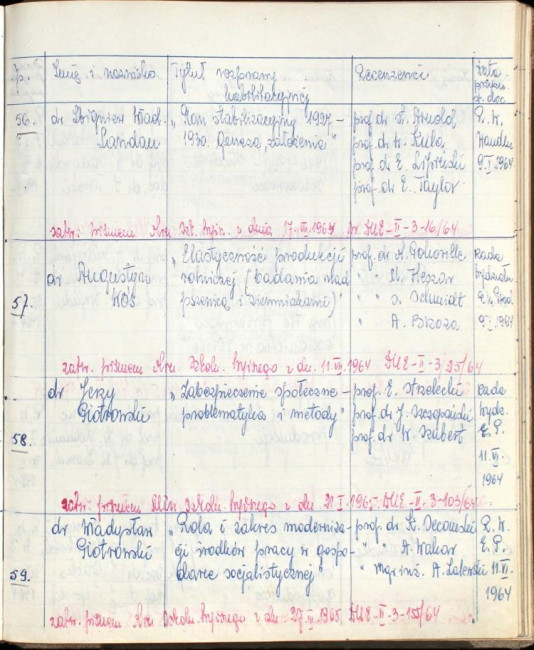 L.p. Imię i nazwisko Tytuł rozprawy habilitacyjnej Recenzenci Data
56. dr Zbigniew Wład. Landau
„Plan stabilizacyjny 1927–
1930. Geneza, założenia"
prof. dr
prof. dr W. Kula
prof. dr E. Lipiński
prof. dr E. Taylor
R. W.
Handlu
9.I.1964
zatw. pismem Min. Szk. Wyż. z dnia 17.III.1964 nr DUE-II-3-16/64
57. dr Augustyn
KOŚ
„Elastyczność produkcji
rolniczej (badania nad
pszenicą i ziemniakami)"
prof. dr
" " M. Pleszar
" " S. Schmidt
" A. Brzoza
Rada
Wydziału
9.I.1964
zatw. pismem Min. Szkoln. Wyższego z dn. 11.VII.1964 DUE-II-3/25/64
58. dr Jerzy
Piotrowski
„Zabezpieczenie społeczne –
problematyka i metody"
prof. E. Strzelecki
prof. dr J. Szczepański
prof. dr W. Szubert
Rada
Wydz.
E. P.
11.VI.
1964
zatw. pismem Min. Szkoln. Wyższego z dn. 21.I.1965 DUE-II-3-103/64
59. dr Władysław
Piotrowski
„Rola i zakres moderniza-
cji środków pracy w gospo-
darce socjalistycznej"
prof. dr K. Secomski
" " A. Wakar
" mgr inż.
R. W.
E. P.
11.VI.
1964
zatw. pismem Min. Szkoln. Wyższego z dn. 27.III.1965, DUE-II-3-155/64